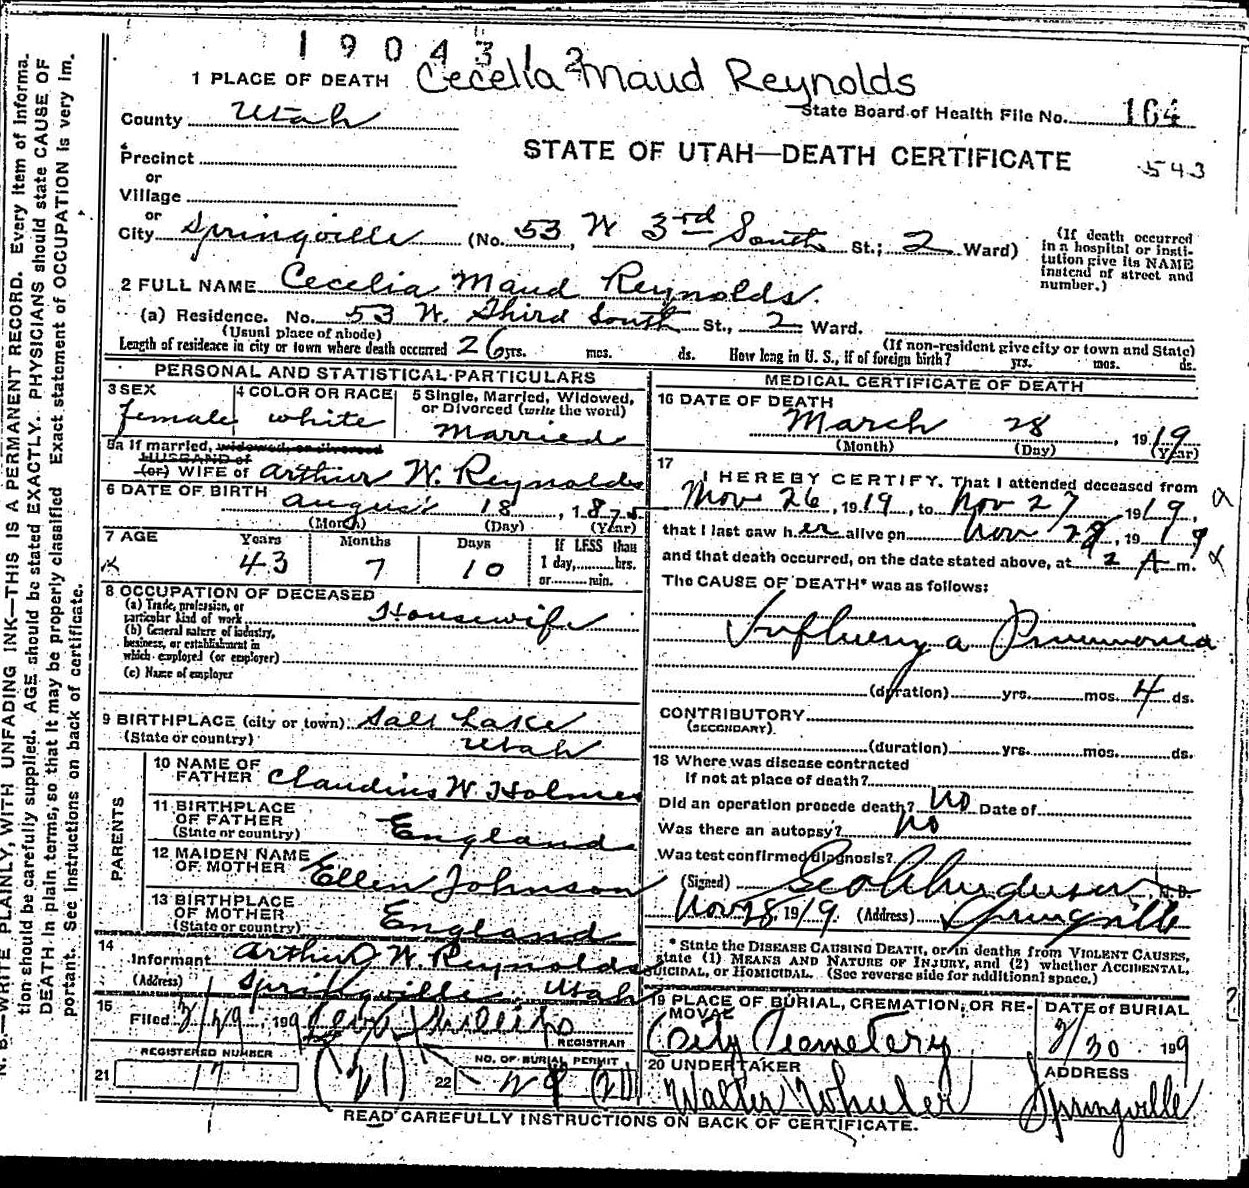 1904312
Cecelia Maud Reynolds
1 PLACE OF DEATH
State Board of Health File No. 164
County Utah
STATE OF UTAH—DEATH CERTIFICATE
543
Precinct
or
Village
or
City Springville (No. 53, W 3rd South St.; 2 Ward)
(If death occurred in a hospital or institution give its NAME instead of street and number.)
2 FULL NAME Cecelia Maud Reynolds.
(a) Residence. No. 53 W. Third South St., 2 Ward.
(Usual place of abode) (If non-resident give city or town and State)
Length of residence in city or town where death occurred 26 yrs. mos. ds. How long in U. S., if of foreign birth? yrs. mos. ds.
PERSONAL AND STATISTICAL PARTICULARS
3 SEX
female
4 COLOR OR RACE
white
5 Single, Married, Widowed, or Divorced (write the word)
Married
5a If married, widowed, or divorced
HUSBAND of
(or) WIFE of Arthur W. Reynolds
6 DATE OF BIRTH
August 18, 1875
(Month) (Day) (Year)
7 AGE Years Months Days If LESS than
43 7 10 1 day, hrs.
or min.
8 OCCUPATION OF DECEASED
(a) Trade, profession, or particular kind of work Housewife
(b) General nature of industry, business, or establishment in which employed (or employer)
(c) Name of employer
9 BIRTHPLACE (city or town) Salt Lake
(State or country) Utah
PARENTS
10 NAME OF FATHER Claudius W. Holmes
11 BIRTHPLACE OF FATHER
(State or country) England
12 MAIDEN NAME OF MOTHER Ellen Johnson
13 BIRTHPLACE OF MOTHER
(State or country) England
14
Informant Arthur W. Reynolds
(Address) Springville, Utah
15
Filed 3/29, 1919
REGISTRAR
REGISTERED NUMBER
21 17 (21)
NO. OF BURIAL PERMIT
22 (21)
MEDICAL CERTIFICATE OF DEATH
16 DATE OF DEATH
March 28, 1919
(Month) (Day) (Year)
17
I HEREBY CERTIFY, That I attended deceased from
Nov 26, 1919, to Nov 27, 1919,
that I last saw her alive on Nov 28, 1919
and that death occurred, on the date stated above, at 2 A m.
The CAUSE OF DEATH* was as follows:
Influenza Pneumonia
(duration) yrs. mos. 4 ds.
CONTRIBUTORY
(SECONDARY)
(duration) yrs. mos. ds.
18 Where was disease contracted
If not at place of death?
Did an operation precede death? No Date of
Was there an autopsy? No
Was test confirmed diagnosis?
(Signed) Geo Anderson M.D.
Nov 28, 1919 (Address) Springville
* State the DISEASE CAUSING DEATH, or in deaths from VIOLENT CAUSES,
state (1) MEANS AND NATURE OF INJURY, and (2) whether ACCIDENTAL,
SUICIDAL, or HOMICIDAL. (See reverse side for additional space.)
19 PLACE OF BURIAL, CREMATION, OR REMOVAL
City Cemetery
DATE OF BURIAL
3/30 1919
20 UNDERTAKER
Walter Wheeler
ADDRESS
Springville
READ CAREFULLY INSTRUCTIONS ON BACK OF CERTIFICATE.
N. B.—WRITE PLAINLY, WITH UNFADING INK—THIS IS A PERMANENT RECORD. Every item of informa-
tion should be carefully supplied. AGE should be stated EXACTLY. PHYSICIANS should state CAUSE OF
DEATH in plain terms, so that it may be properly classified. Exact statement of OCCUPATION is very im-
portant. See instructions on back of certificate.